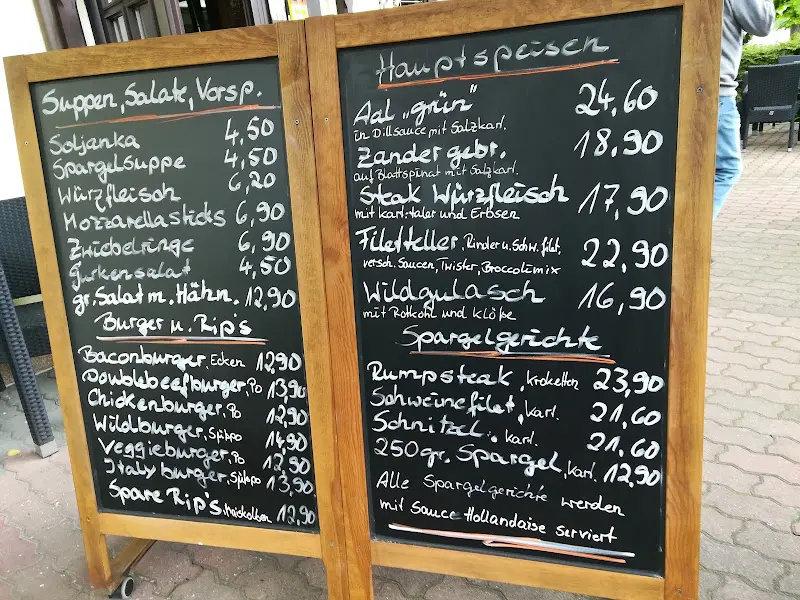 Suppen, Salate, Vorsp.
Soljanka 4,50
Spargelsuppe 4,50
Würzfleisch 6,20
Mozzarellasticks 6,90
Zwiebelringe 6,90
Gurkensalat 4,50
gr. Salat m. Hähn. 12,90
Burger u. Rip's
Baconburger, Ecken 12,90
Doublebeefburger, Po 13,90
Chickenburger, Po 12,90
Wildburger, Spikpo 14,90
Veggieburger, Po 12,90
Italyburger, Spikpo 13,90
Spare Rip's, Maiskolben 12,90
Hauptspeisen
Aal „grün" 24,60
in Dillsauce mit Salzkarl.
Zander gebr. 18,90
auf Blattspinat mit Salzkarl.
Steak Würzfleisch 17,90
mit Karl.taler und Erbsen
Filetteller, Rinder u. Schw. filet, 22,90
versch. Saucen, Twister, Broccolimix
Wildgulasch 16,90
mit Rotkohl und Klöße
Spargelgerichte
Rumpsteak, Kroketten 23,90
Schweinefilet, Karl. 21,60
Schnitzel, Karl. 21,60
250gr. Spargel, Karl. 12,90
Alle Spargelgerichte werden
mit Sauce Hollandaise serviert